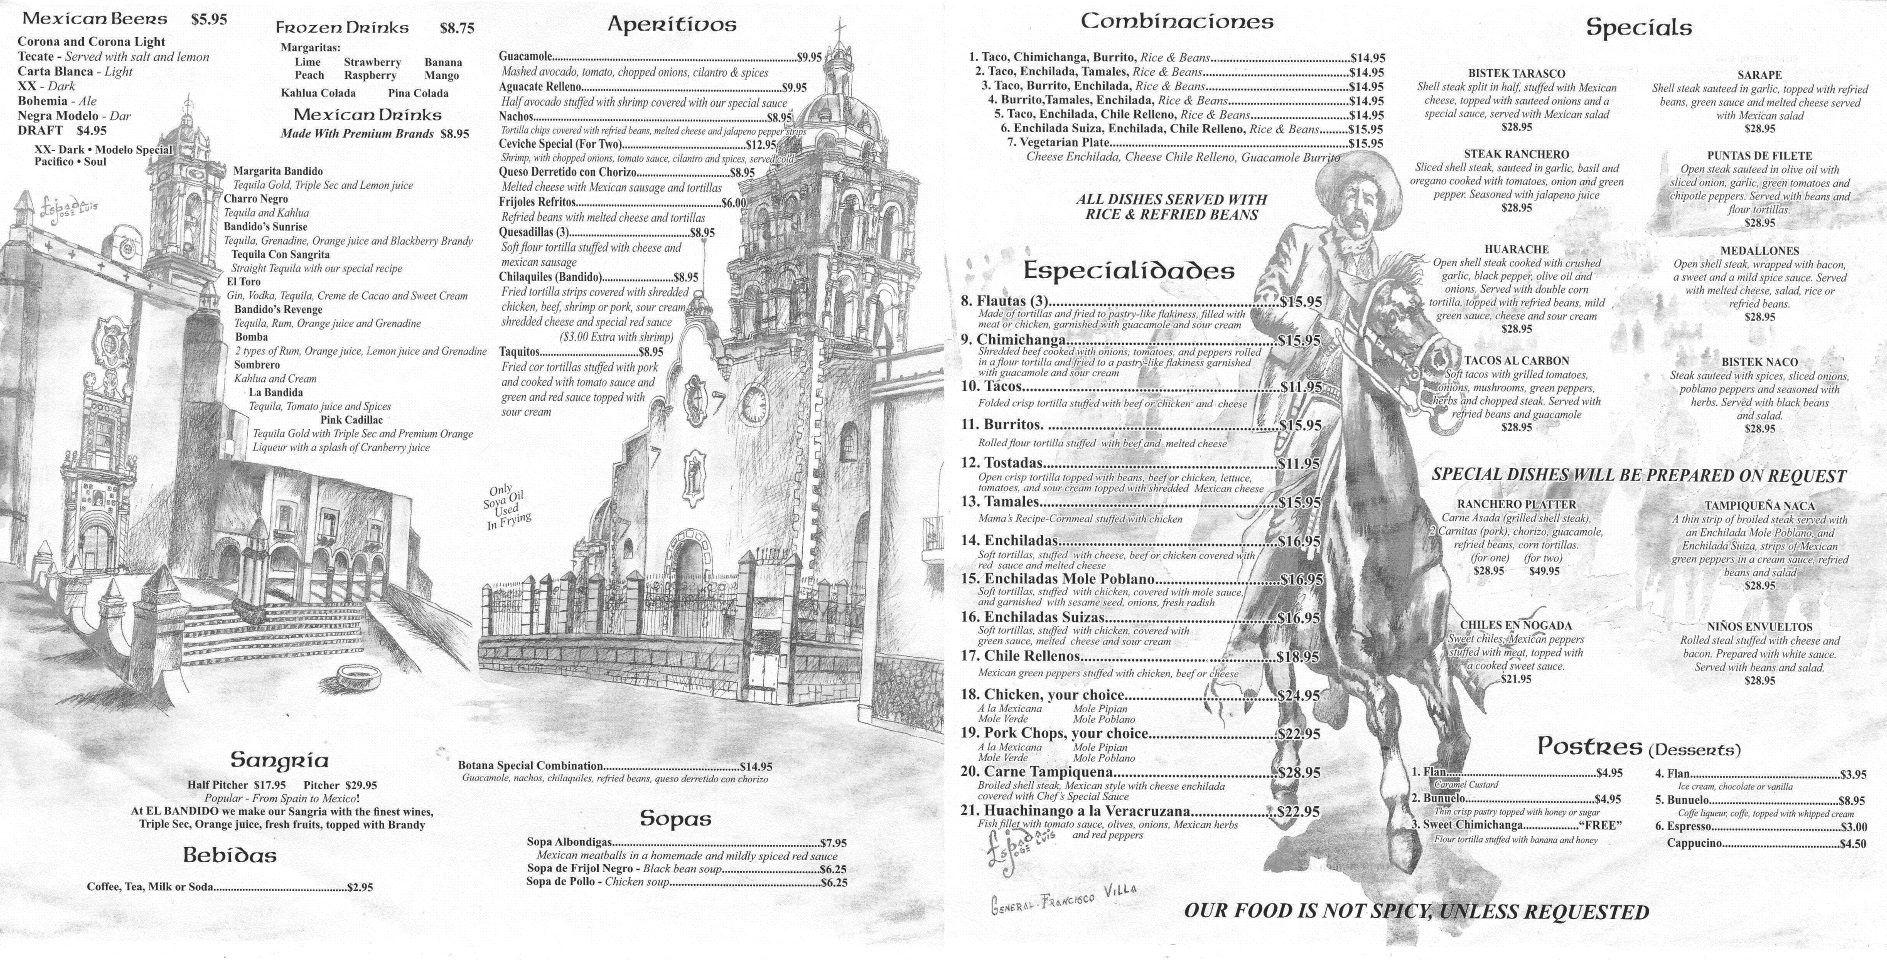 Mexican Beers $5.95
Corona and Corona Light
Tecate - Served with salt and lemon
Carta Blanca - Light
XX - Dark
Bohemia - Ale
Negra Modelo - Dar
DRAFT $4.95
XX- Dark • Modelo Special
Pacifico • Soul
Frozen Drinks $8.75
Margaritas:
Lime Strawberry Banana
Peach Raspberry Mango
Kahlua Colada Pina Colada
Mexican Drinks
Made With Premium Brands $8.95
Margarita Bandido
Tequila Gold, Triple Sec and Lemon juice
Charro Negro
Tequila and Kahlua
Bandido's Sunrise
Tequila, Grenadine, Orange juice and Blackberry Brandy
Tequila Con Sangrita
Straight Tequila with our special recipe
El Toro
Gin, Vodka, Tequila, Creme de Cacao and Sweet Cream
Bandido's Revenge
Tequila, Rum, Orange juice and Grenadine
Bomba
2 types of Rum, Orange juice, Lemon juice and Grenadine
Sombrero
Kahlua and Cream
La Bandida
Tequila, Tomato juice and Spices
Pink Cadillac
Tequila Gold with Triple Sec and Premium Orange
Liqueur with a splash of Cranberry juice
Espada
Jose Luis
Sangria
Half Pitcher $17.95 Pitcher $29.95
Popular - From Spain to Mexico!
At EL BANDIDO we make our Sangria with the finest wines,
Triple Sec, Orange juice, fresh fruits, topped with Brandy
Bebidas
Coffee, Tea, Milk or Soda...$2.95
Aperitivos
Guacamole...$9.95
Mashed avocado, tomato, chopped onions, cilantro & spices
Aguacate Relleno...$9.95
Half avocado stuffed with shrimp covered with our special sauce
Nachos...$8.95
Tortilla chips covered with refried beans, melted cheese and jalapeno pepper strips
Ceviche Special (For Two)...$12.95
Shrimp, with chopped onions, tomato sauce, cilantro and spices, served cold
Queso Derretido con Chorizo...$8.95
Melted cheese with Mexican sausage and tortillas
Frijoles Refritos...$6.00
Refried beans with melted cheese and tortillas
Quesadillas (3)...$8.95
Soft flour tortilla stuffed with cheese and
mexican sausage
Chilaquiles (Bandido)...$8.95
Fried tortilla strips covered with shredded
chicken, beef, shrimp or pork, sour cream
shredded cheese and special red sauce
($3.00 Extra with shrimp)
Taquitos...$8.95
Fried cor tortillas stuffed with pork
and cooked with tomato sauce and
green and red sauce topped with
sour cream
Only
Soya Oil
Used
In Frying
Botana Special Combination...$14.95
Guacamole, nachos, chilaquiles, refried beans, queso derretido con chorizo
Sopas
Sopa Albondigas...$7.95
Mexican meatballs in a homemade and mildly spiced red sauce
Sopa de Frijol Negro - Black bean soup...$6.25
Sopa de Pollo - Chicken soup...$6.25
Combinaciones
1. Taco, Chimichanga, Burrito, Rice & Beans...$14.95
2. Taco, Enchilada, Tamales, Rice & Beans...$14.95
3. Taco, Burrito, Enchilada, Rice & Beans...$14.95
4. Burrito,Tamales, Enchilada, Rice & Beans...$14.95
5. Taco, Enchilada, Chile Relleno, Rice & Beans...$14.95
6. Enchilada Suiza, Enchilada, Chile Relleno, Rice & Beans...$15.95
7. Vegetarian Plate...$15.95
Cheese Enchilada, Cheese Chile Relleno, Guacamole Burrito
ALL DISHES SERVED WITH
RICE & REFRIED BEANS
Especialidades
8. Flautas (3)...$15.95
Made of tortillas and fried to pastry-like flakiness, filled with
meat or chicken, garnished with guacamole and sour cream
9. Chimichanga...$15.95
Shredded beef cooked with onions, tomatoes, and peppers rolled
in a flour tortilla and fried to a pastry-like flakiness garnished
with guacamole and sour cream
10. Tacos...$11.95
Folded crisp tortilla stuffed with beef or chicken and cheese
11. Burritos. ...$15.95
Rolled flour tortilla stuffed with beef and melted cheese
12. Tostadas...$11.95
Open crisp tortilla topped with beans, beef or chicken, lettuce,
tomatoes, and sour cream topped with shredded Mexican cheese
13. Tamales...$15.95
Mama's Recipe-Cornmeal stuffed with chicken
14. Enchiladas...$16.95
Soft tortillas, stuffed with cheese, beef or chicken covered with
red sauce and melted cheese
15. Enchiladas Mole Poblano...$16.95
Soft tortillas, stuffed with chicken, covered with mole sauce,
and garnished with sesame seed, onions, fresh radish
16. Enchiladas Suizas...$16.95
Soft tortillas, stuffed with chicken, covered with
green sauce, melted cheese and sour cream
17. Chile Rellenos...$18.95
Mexican green peppers stuffed with chicken, beef or cheese
18. Chicken, your choice...$24.95
A la Mexicana Mole Pipian
Mole Verde Mole Poblano
19. Pork Chops, your choice...$22.95
A la Mexicana Mole Pipian
Mole Verde Mole Poblano
20. Carne Tampiquena...$28.95
Broiled shell steak, Mexican style with cheese enchilada
covered with Chef's Special Sauce
21. Huachinango a la Veracruzana...$22.95
Fish fillet with tomato sauce, olives, onions, Mexican herbs
and red peppers
Espada
Jose Luis
General. Francisco Villa
Specials
BISTEK TARASCO
Shell steak split in half, stuffed with Mexican
cheese, topped with sauteed onions and a
special sauce, served with Mexican salad
$28.95
STEAK RANCHERO
Sliced shell steak, sauteed in garlic, basil and
oregano cooked with tomatoes, onion and green
pepper. Seasoned with jalapeno juice
$28.95
HUARACHE
Open shell steak cooked with crushed
garlic, black pepper, olive oil and
onions. Served with double corn
tortilla, topped with refried beans, mild
green sauce, cheese and sour cream
$28.95
TACOS AL CARBON
Soft tacos with grilled tomatoes,
onions, mushrooms, green peppers,
herbs and chopped steak. Served with
refried beans and guacamole
$28.95
SARAPE
Shell steak sauteed in garlic, topped with refried
beans, green sauce and melted cheese served
with Mexican salad
$28.95
PUNTAS DE FILETE
Open steak sauteed in olive oil with
sliced onion, garlic, green tomatoes and
chipotle peppers. Served with beans and
flour tortillas.
$28.95
MEDALLONES
Open shell steak, wrapped with bacon,
a sweet and a mild spice sauce. Served
with melted cheese, salad, rice or
refried beans.
$28.95
BISTEK NACO
Steak sauteed with spices, sliced onions,
poblano peppers and seasoned with
herbs. Served with black beans
and salad.
$28.95
SPECIAL DISHES WILL BE PREPARED ON REQUEST
RANCHERO PLATTER
Carne Asada (grilled shell steak),
2 Carnitas (pork), chorizo, guacamole,
refried beans, corn tortillas.
(for one) (for two)
$28.95 $49.95
CHILES EN NOGADA
Sweet chiles, Mexican peppers
stuffed with meat, topped with
a cooked sweet sauce.
$21.95
TAMPIQUEÑA NACA
A thin strip of broiled steak served with
an Enchilada Mole Poblano, and
Enchilada Suiza, strips of Mexican
green peppers in a cream sauce, refried
beans and salad
$28.95
NIÑOS ENVUELTOS
Rolled steal stuffed with cheese and
bacon. Prepared with white sauce.
Served with beans and salad.
$28.95
Postres (Desserts)
1. Flan...$4.95
Caramel Custard
2. Bunuelo...$4.95
Thin crisp pastry topped with honey or sugar
3. Sweet Chimichanga..."FREE"
Flour tortilla stuffed with banana and honey
4. Flan...$3.95
Ice cream, chocolate or vanilla
5. Bunuelo...$8.95
Coffe liqueur, coffe, topped with whipped cream
6. Espresso...$3.00
Cappucino...$4.50
OUR FOOD IS NOT SPICY, UNLESS REQUESTED